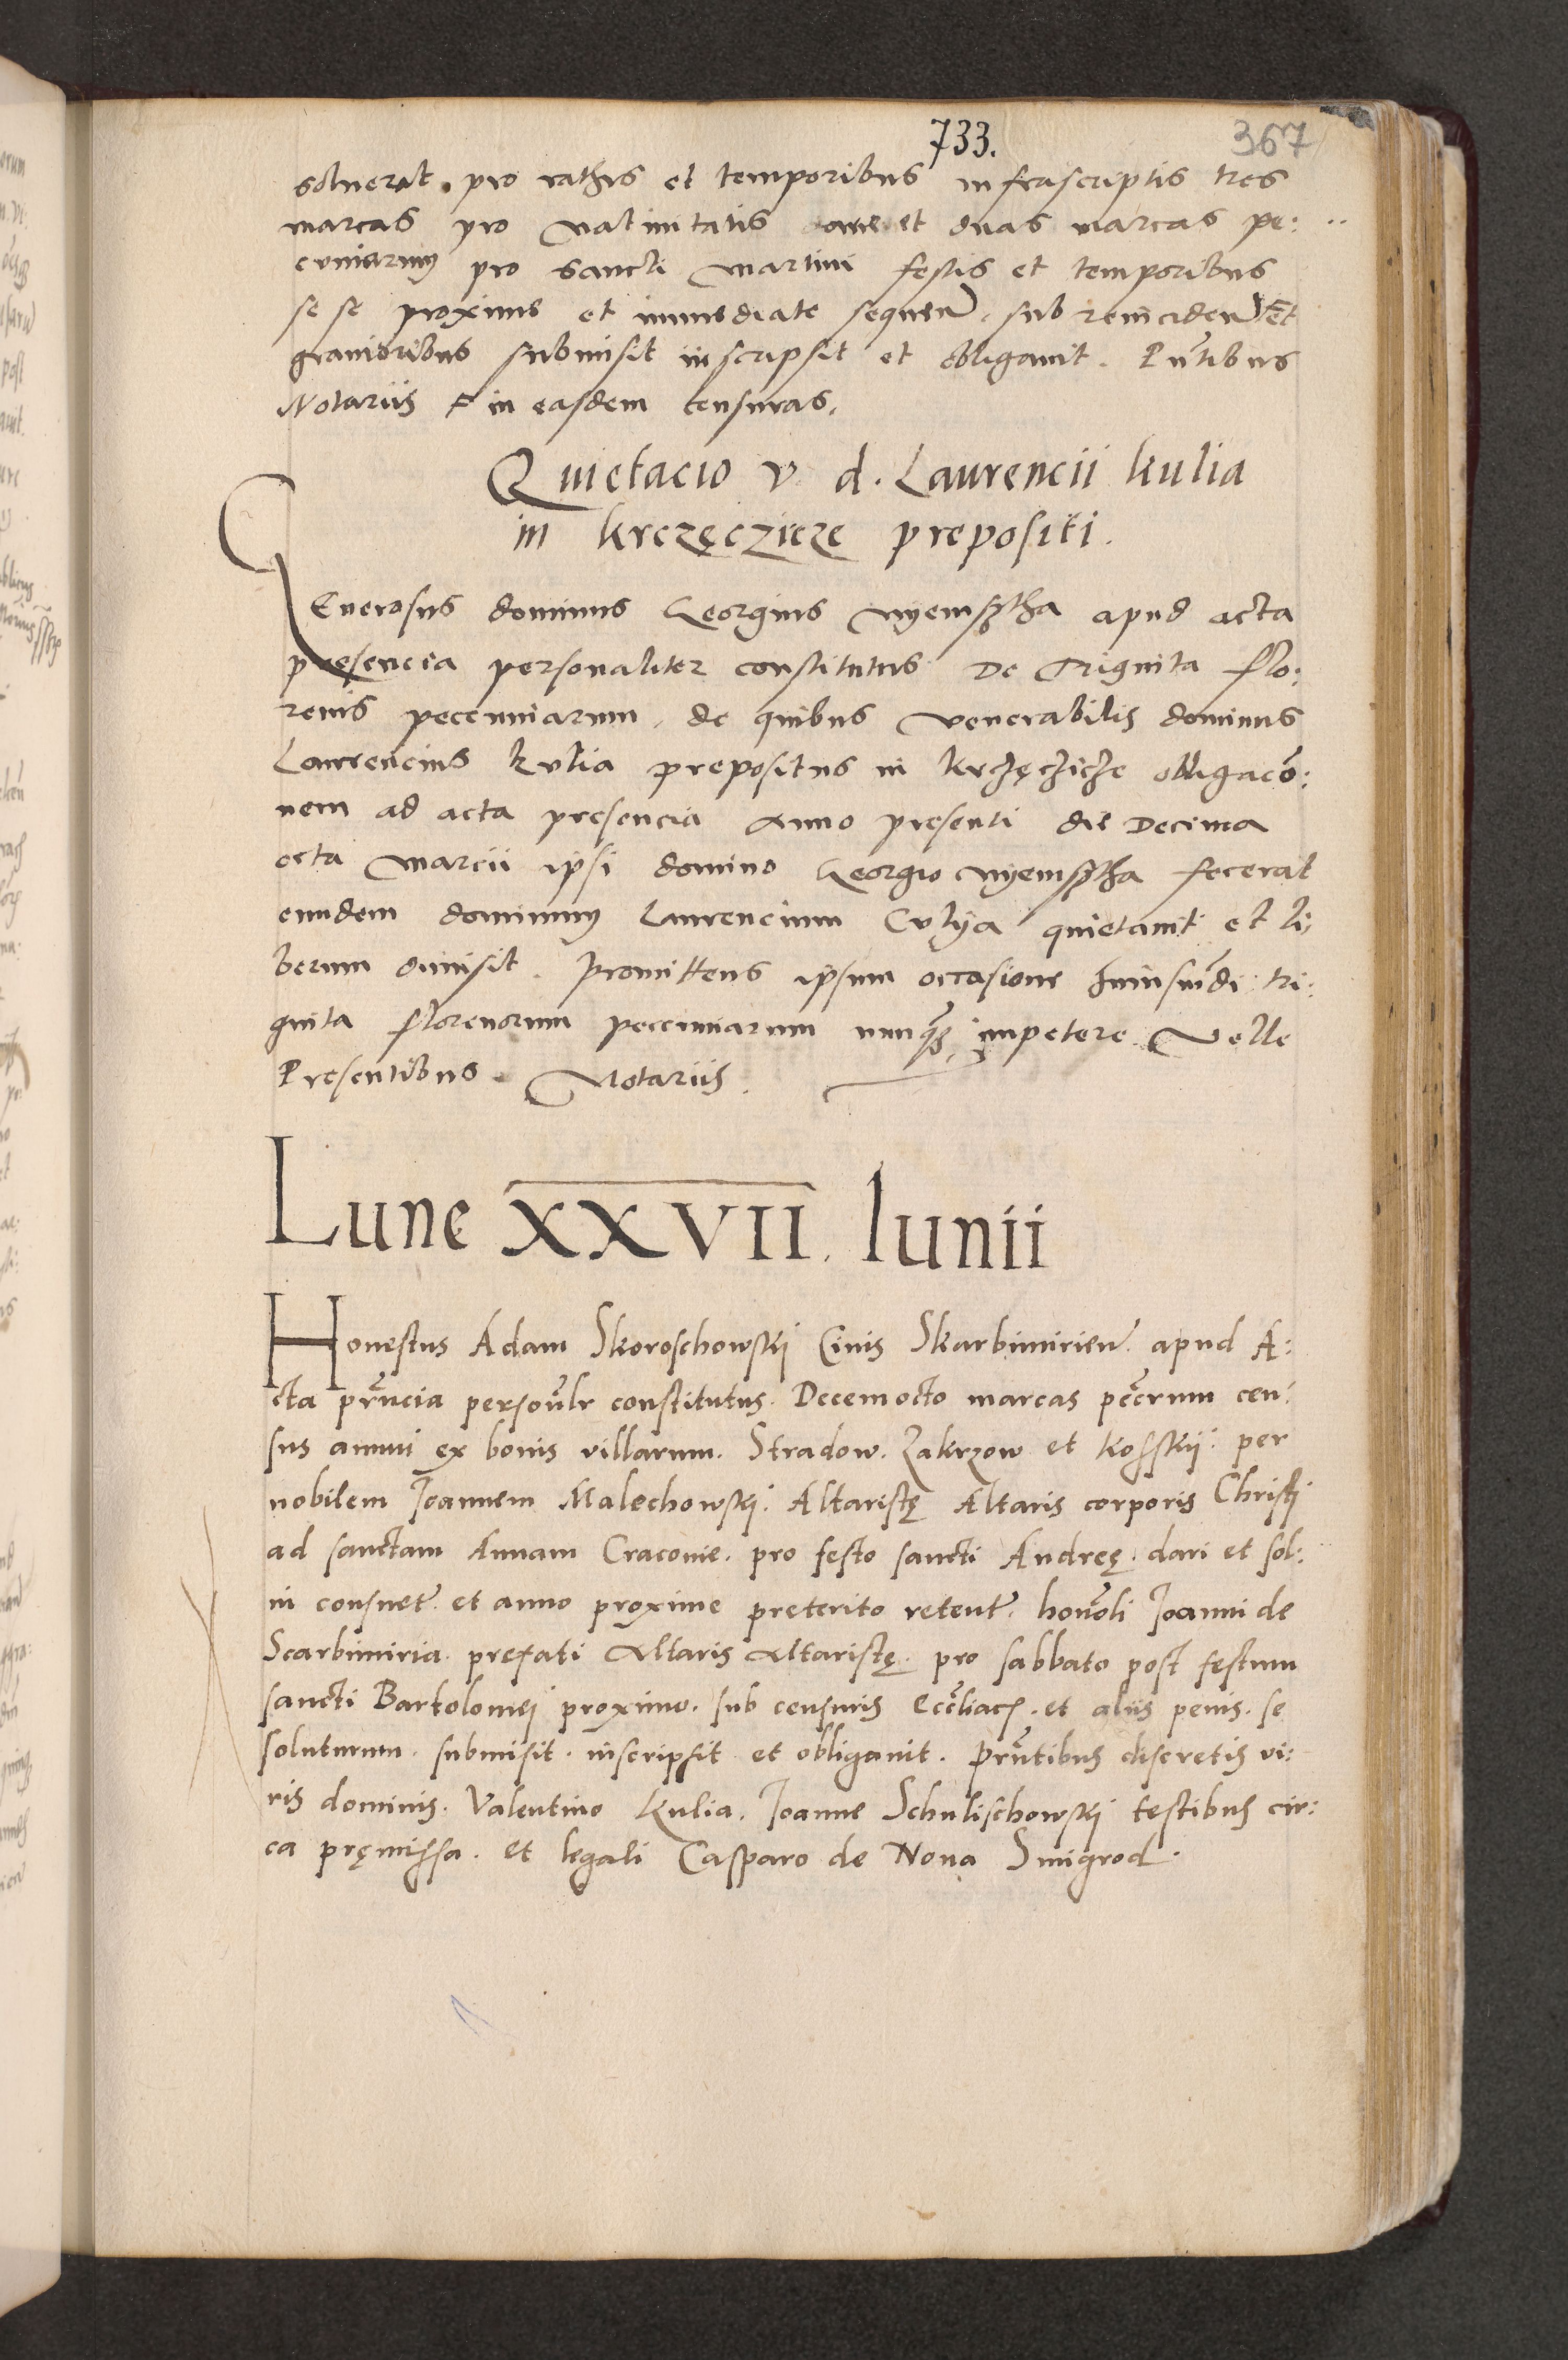 733.
367
soluerat. pro rathis et temporibus infrascriptis tres
marcas pro natiuitatis et duas marcas pe:
cuniarum pro sancti Martini festis et temporibus
se se proxime et immediate sequen̄. sub reinciden̄ Et
grauioribus submisit inscripsit et obligauit. Pn̄tibus
Notariis in easdem censuras.
Quietacio v. d. Laurencii Kulia
in Krczęczicze prepositi.
GEnerosus dominus Georgius Nyemsztha apud acta
presencia personaliter constitutus De Triginta flo:
renis peccuniarum. de quibus venerabilis dominus
Laurencius Kulia prepositus in Krczęczicze obligacō:
nem ad acta presencia Anno presenti die Decima
octa Marcii ipsi domino Georgio Nyemsztha fecerat
eundem dominum Laurencium Culya quietauit et li:
berum dimisit. Promittens ipsum occasione huiusmōdi tri:
ginta florenorum peccuniarum nunq̄ impetere Velle
Presentibus. Notariis.
Lune XXVII. Iunii
Honestus Adam Skoroschowskj Ciuis Skarbimirien̄. apud A:
cta pn̄ncia personl̄r constitutus. Decemocto marcas pecc̄rum cen:
sus annui ex bonis villarum. Stradow. Zakrzow et Kosskij. per
nobilem Joannem Malechowskj. Altaristę Altaris corporis Christi
ad sanctam Annam Craconie. pro festo sancti Andreę. dari et sol:
ui consuet̄. et anno proxime preterito retent̄. honor̄li Joanni de
Scarbimiria. prefati Altaris Altaristę. pro sabbato post festum
sancti Bartolomej proximo. sub censuris Ecc̄liacs. et aliis penis. se
soluturum. submisit. inscripsit et obligauit. Prn̄tibus discretis vi:
ris dominis. Valentino Kulia. Joanne Schulischowskj testibus cir:
ca pręmissa. et legali Casparo de Noua Smigrod.